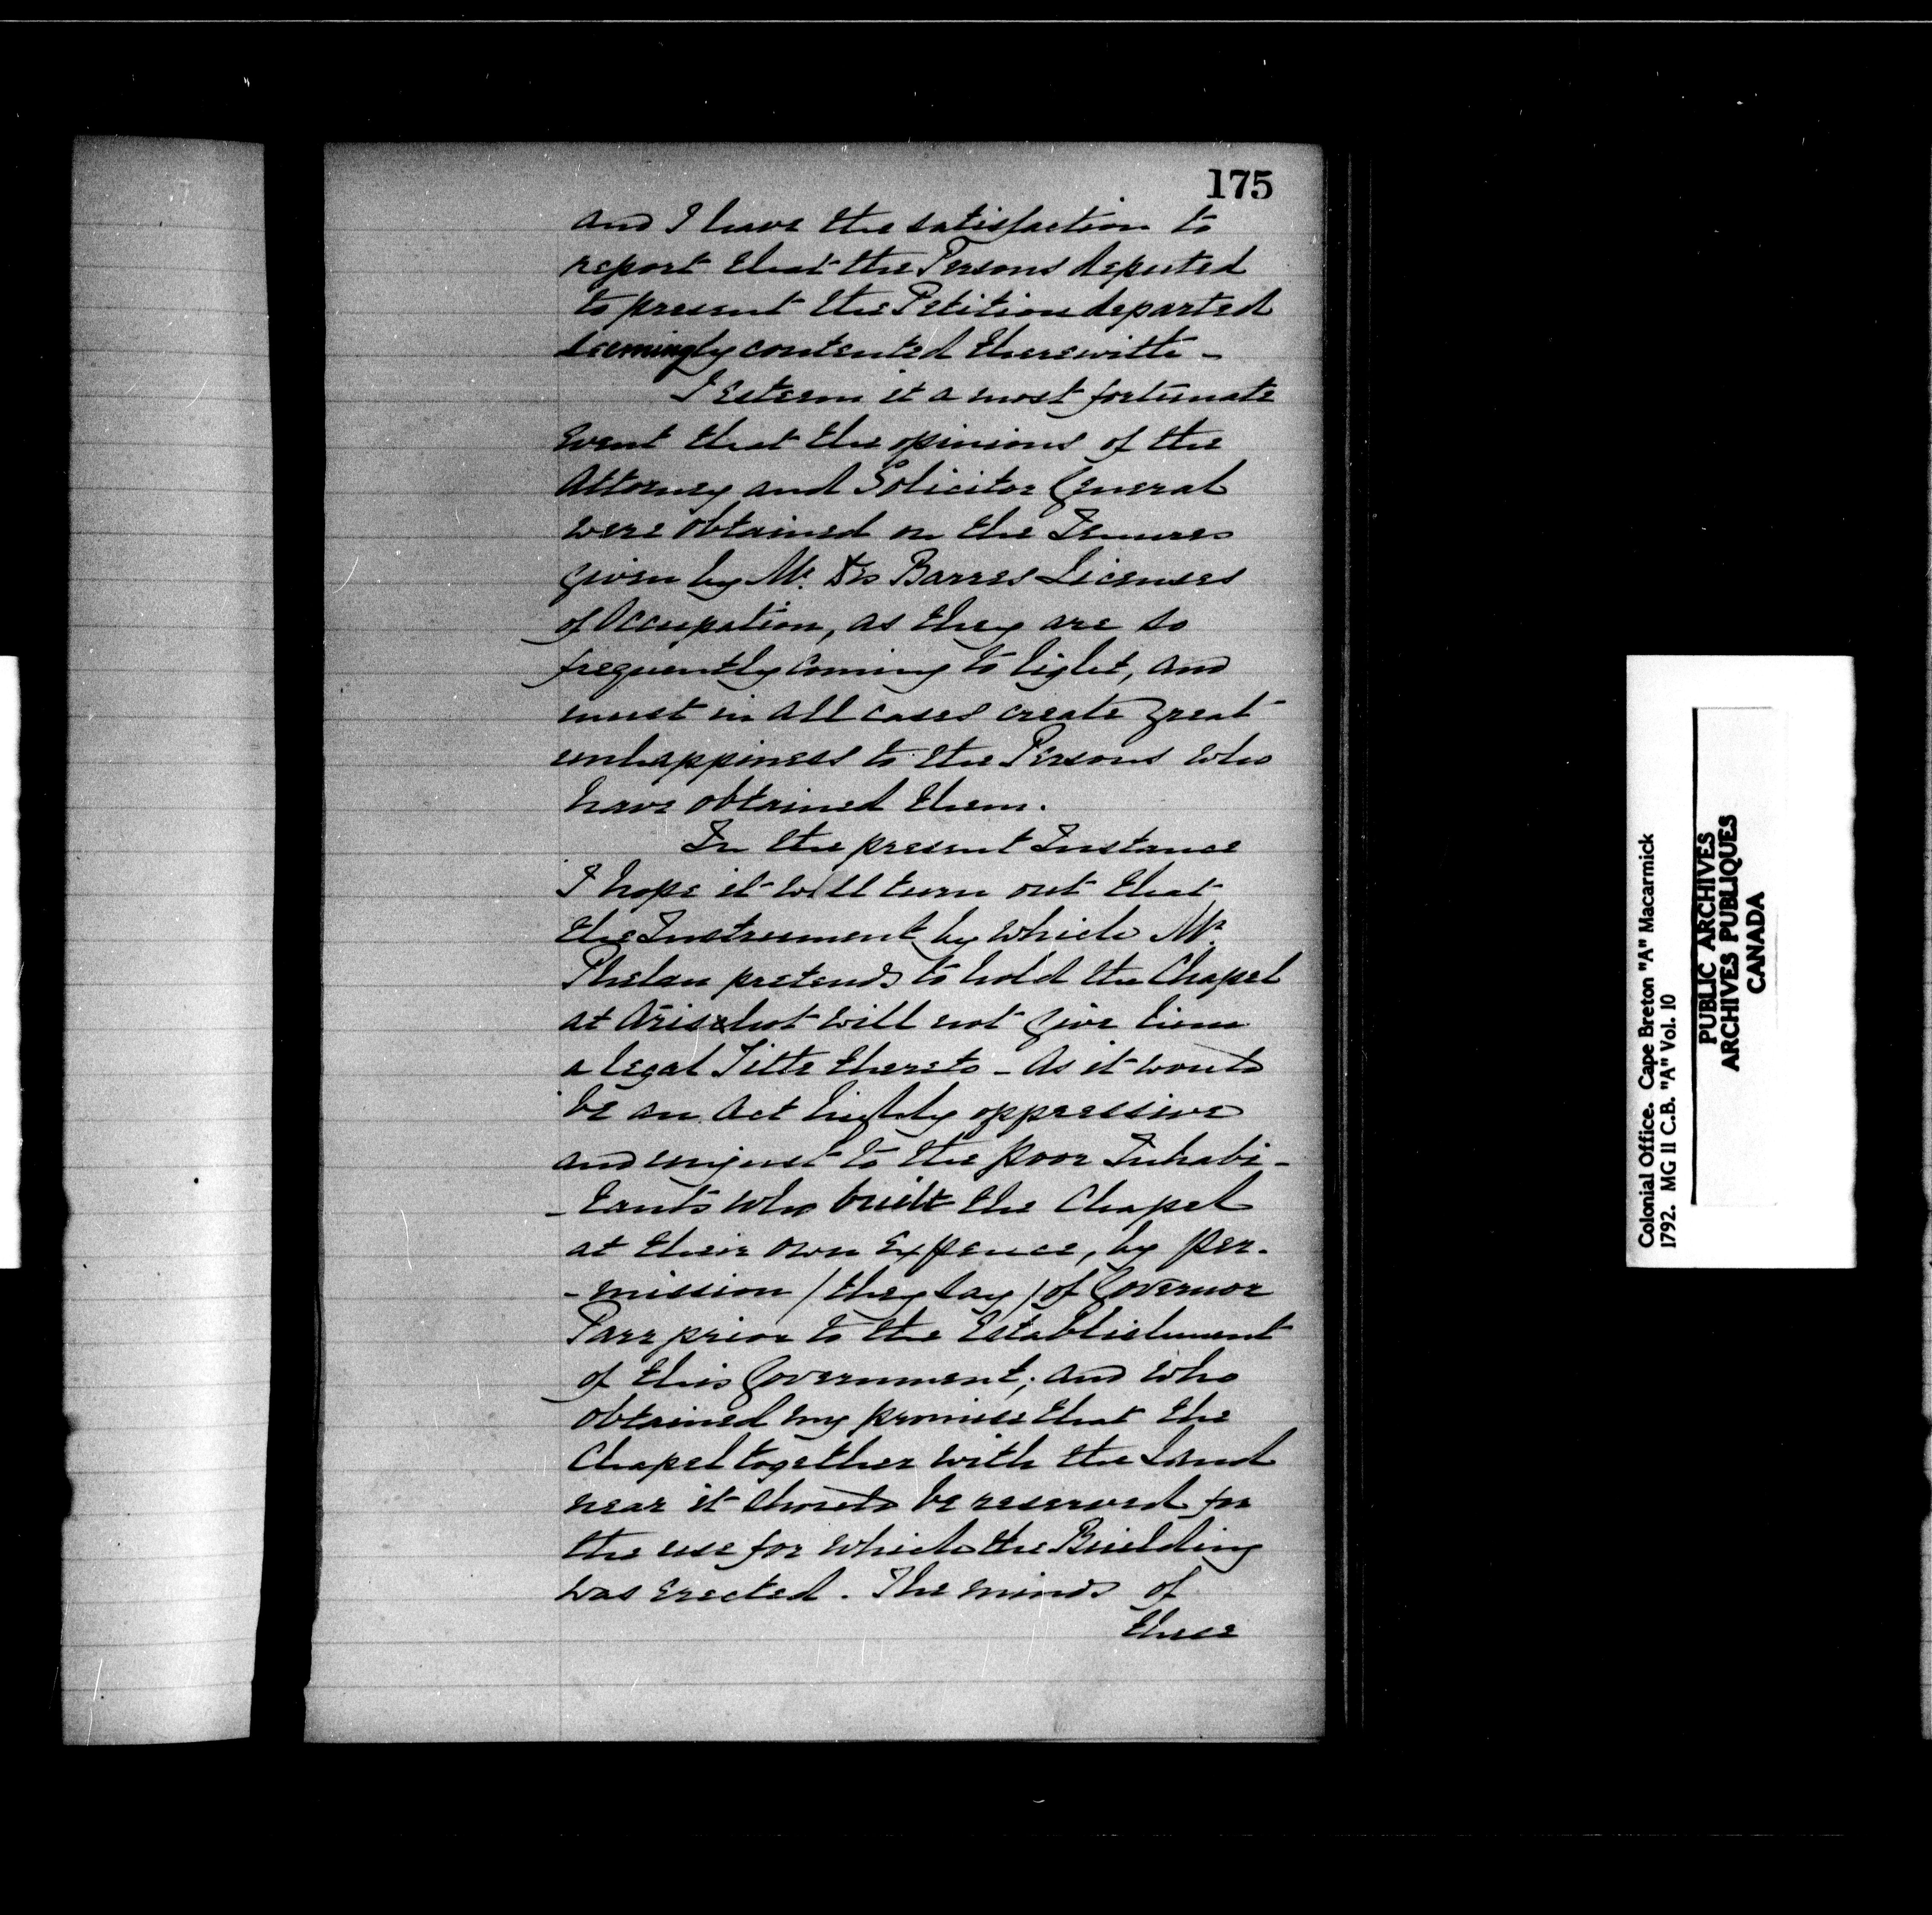 175
and I have the satisfaction to
report that the Persons deputed
to present the Petition departed
seemingly contented therewith -
I Esteem it a most fortunate
Event that the opinions of the
Attorney and Solicitor General
were obtained on the Tenures
given by Mr. Des Barres Licenses
of Occupation, as they are so
frequently coming to light, and
must in all cases create great
unhappiness to the Persons who
have obtained them.
In the present Instance
I hope it will turn out that
the Instrument by which Mr.
Phelan pretends to hold the Chapel
at Arischot will not give him
a legal Title thereto - As it would
be an Act highly oppressive
and unjust to the poor Inhabi-
-tants who built the Chapel
at their own Expence, by per-
-mission / they say / of Governor
Parr prior to the Establishment
of this Government; and who
obtained my promise that the
Chapel together with the Land
near it should be reserved for
the use for which the Building
was erected. The minds of
these
Colonial Office. Cape Breton "A" Macarmick
1792. MG 11 C.B. "A" Vol. 10
PUBLIC ARCHIVES
ARCHIVES PUBLIQUES
CANADA